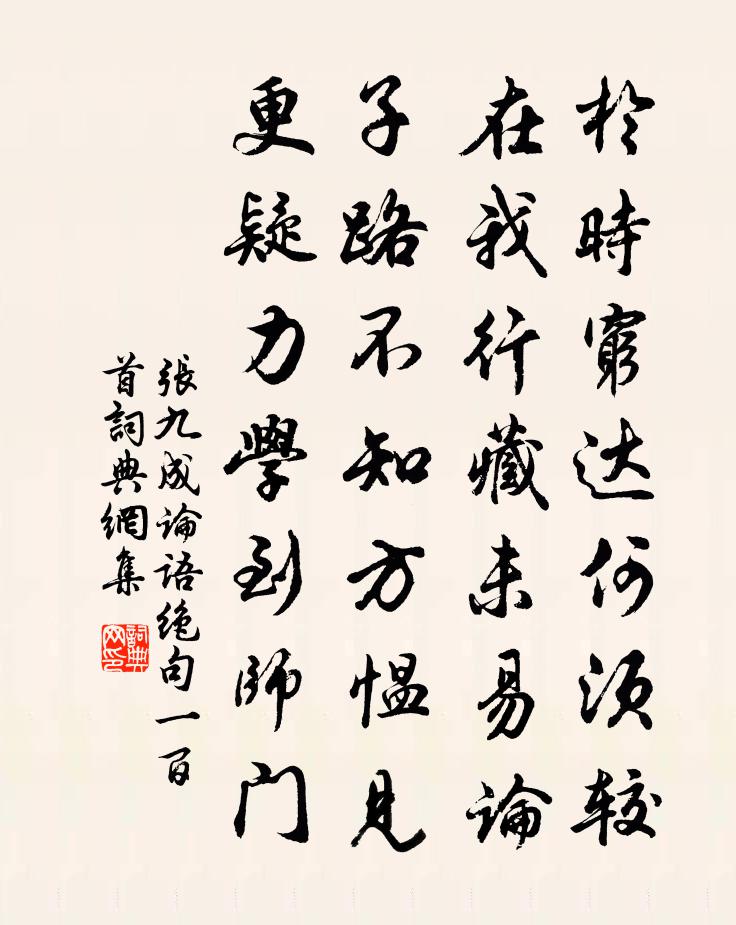 於時窮达何須较
在我行藏未易論
子路不知方愠見
更疑力學到師门
張九成論语绝句一百
首詞典網集
詞典
网印